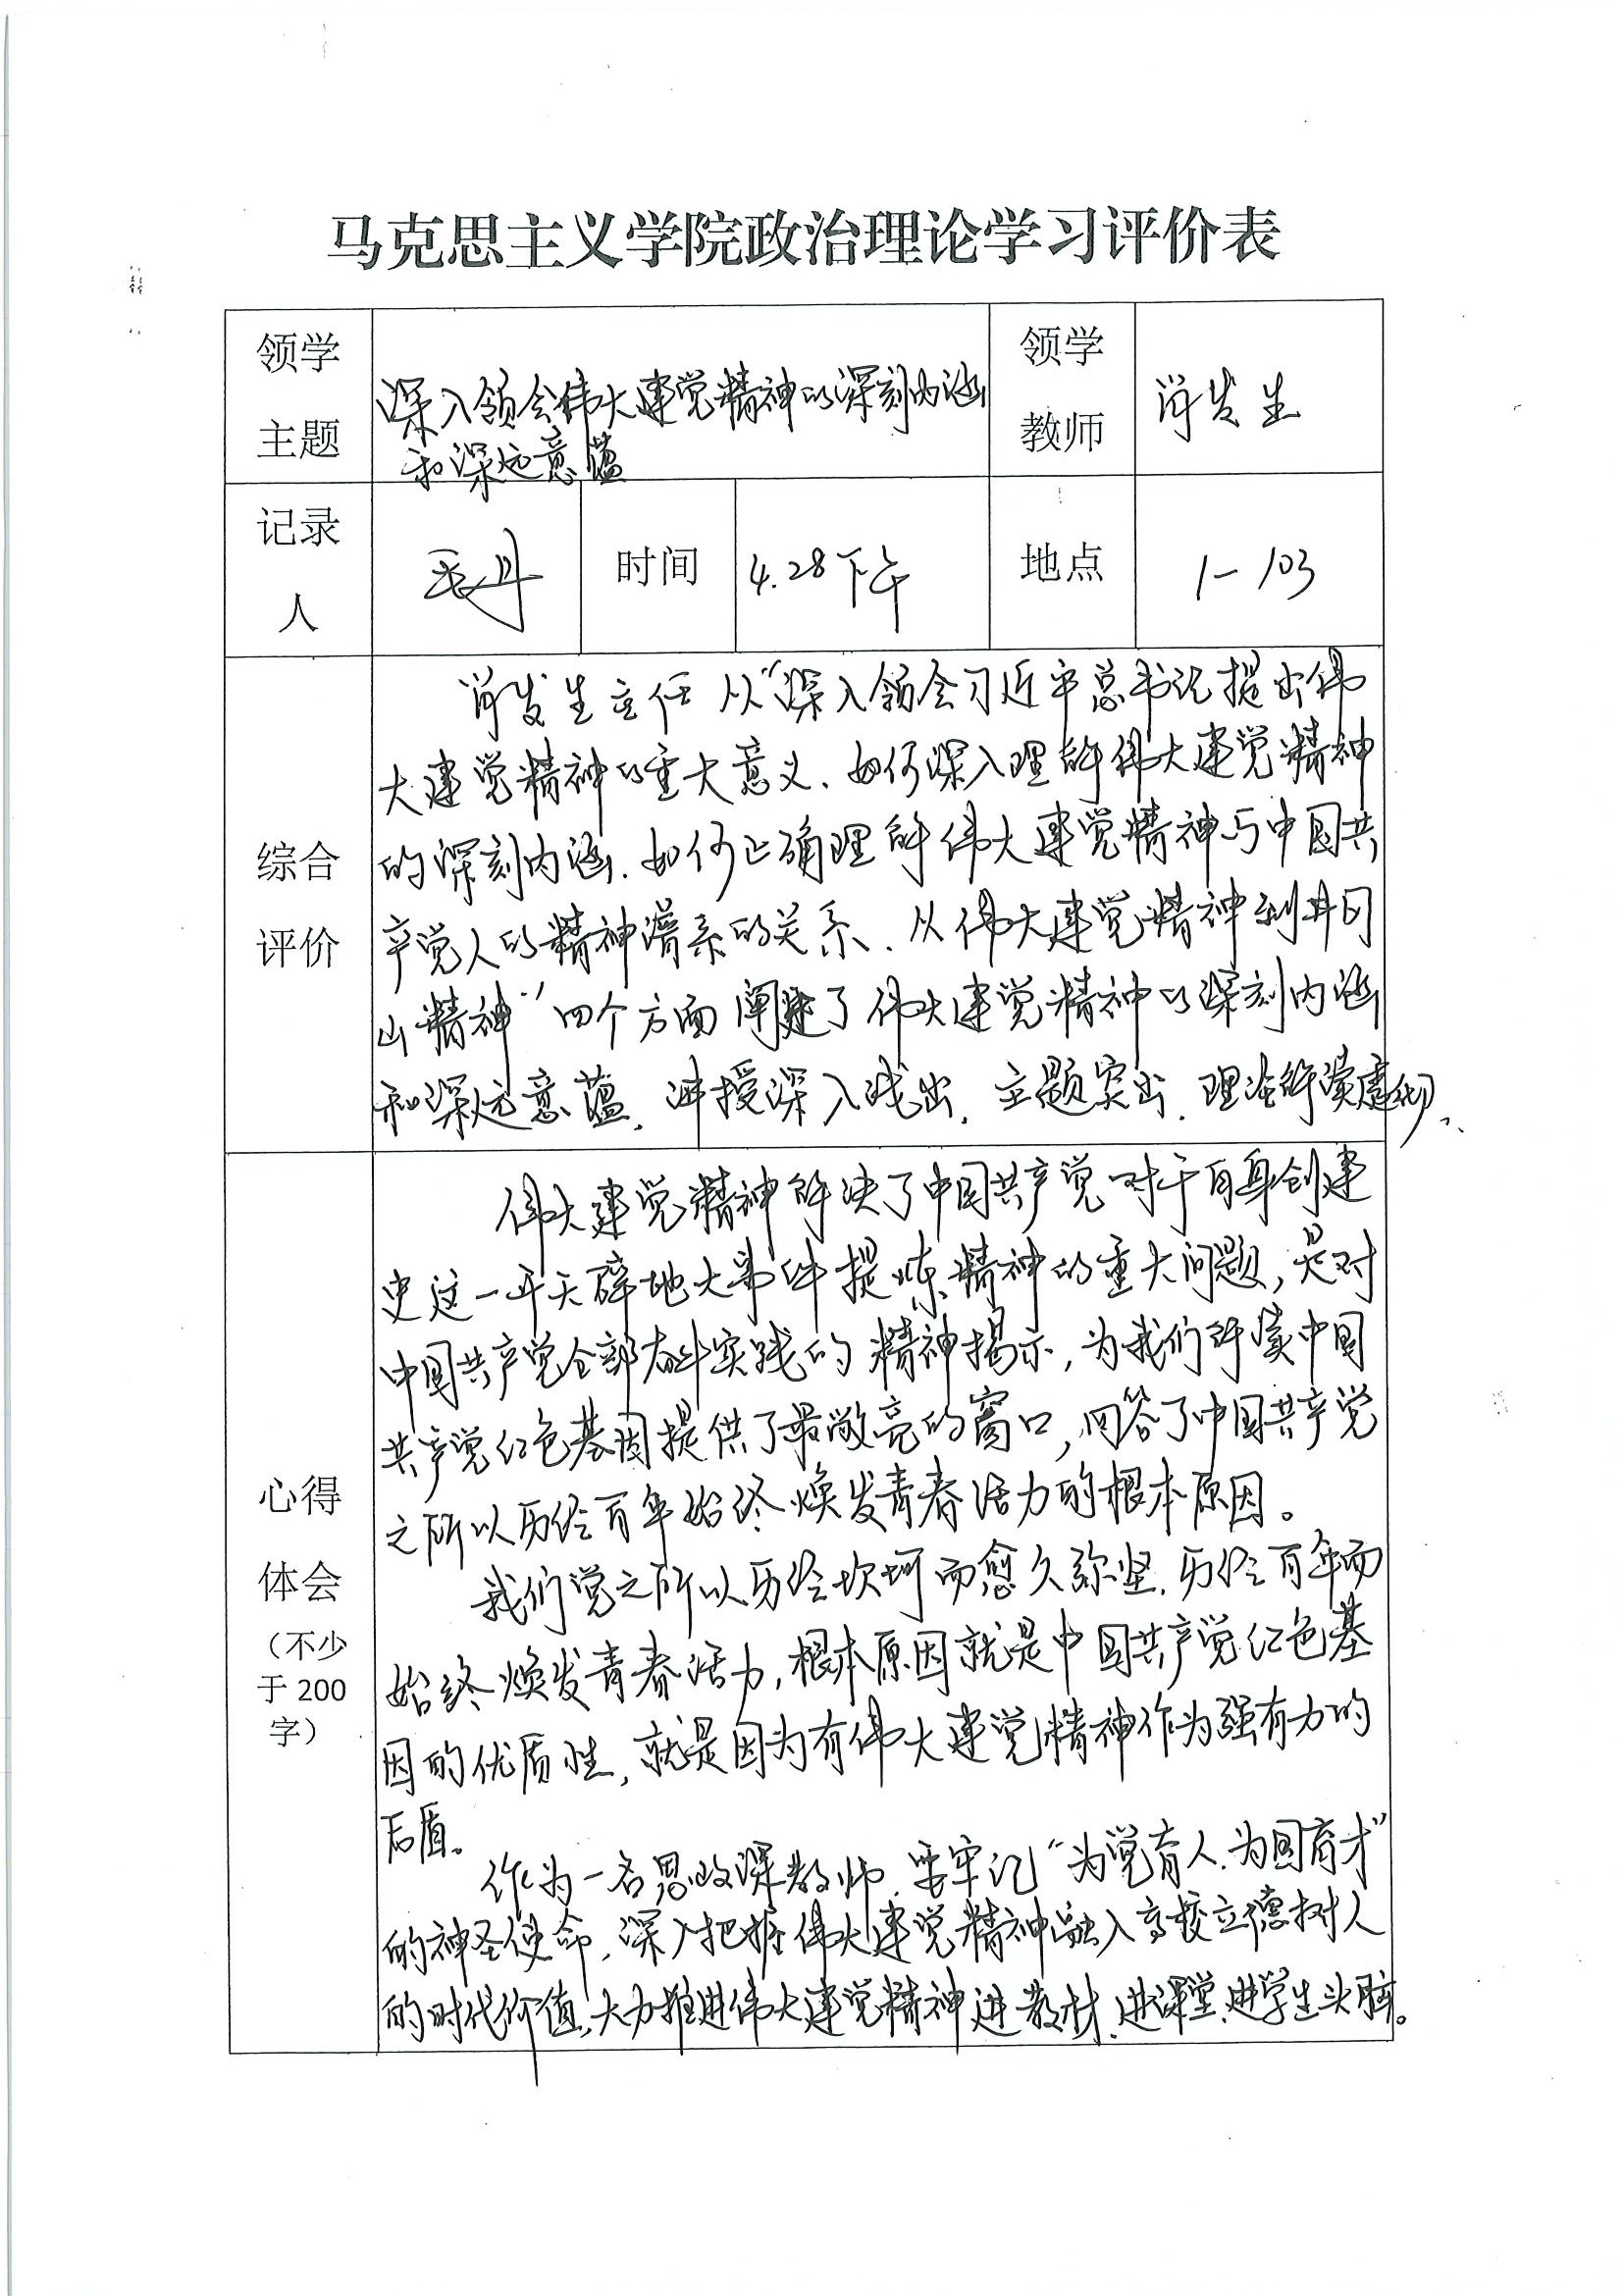 马克思主义学院政治理论学习评价表
领学
主题
深入领会伟大建党精神的深刻内涵
和深远意蕴
领学
教师
肖发生
记录
人
毛丹
时间
4.28下午
地点
1-103
综合
评价
肖发生主任从“深入领会习近平总书记提出伟
大建党精神的重大意义、如何深入理解伟大建党精神
的深刻内涵、如何正确理解伟大建党精神与中国共
产党人的精神谱系的关系、从伟大建党精神到井冈
山精神”四个方面阐述了伟大建党精神的深刻内涵
和深远意蕴,讲授深入浅出,主题突出,理论解读透彻、
心得
体会
(不少
于200
字)
伟大建党精神解决了中国共产党对于自身创建
史这一开天辟地大事件提炼精神的重大问题,是对
中国共产党全部奋斗实践的精神揭示,为我们解读中国
共产党红色基因提供了最敞亮的窗口,回答了中国共产党
之所以历经百年始终焕发青春活力的根本原因。
我们党之所以历经坎坷而愈久弥坚,历经百年而
始终焕发青春活力,根本原因就是中国共产党红色基
因的优质性,就是因为有伟大建党精神作为强有力的
后盾。
作为一名思政课教师,要牢记“为党育人、为国育才”
的神圣使命,深入把握伟大建党精神融入高校立德树人
的时代价值,大力推进伟大建党精神进教材、进课堂、进学生头脑。